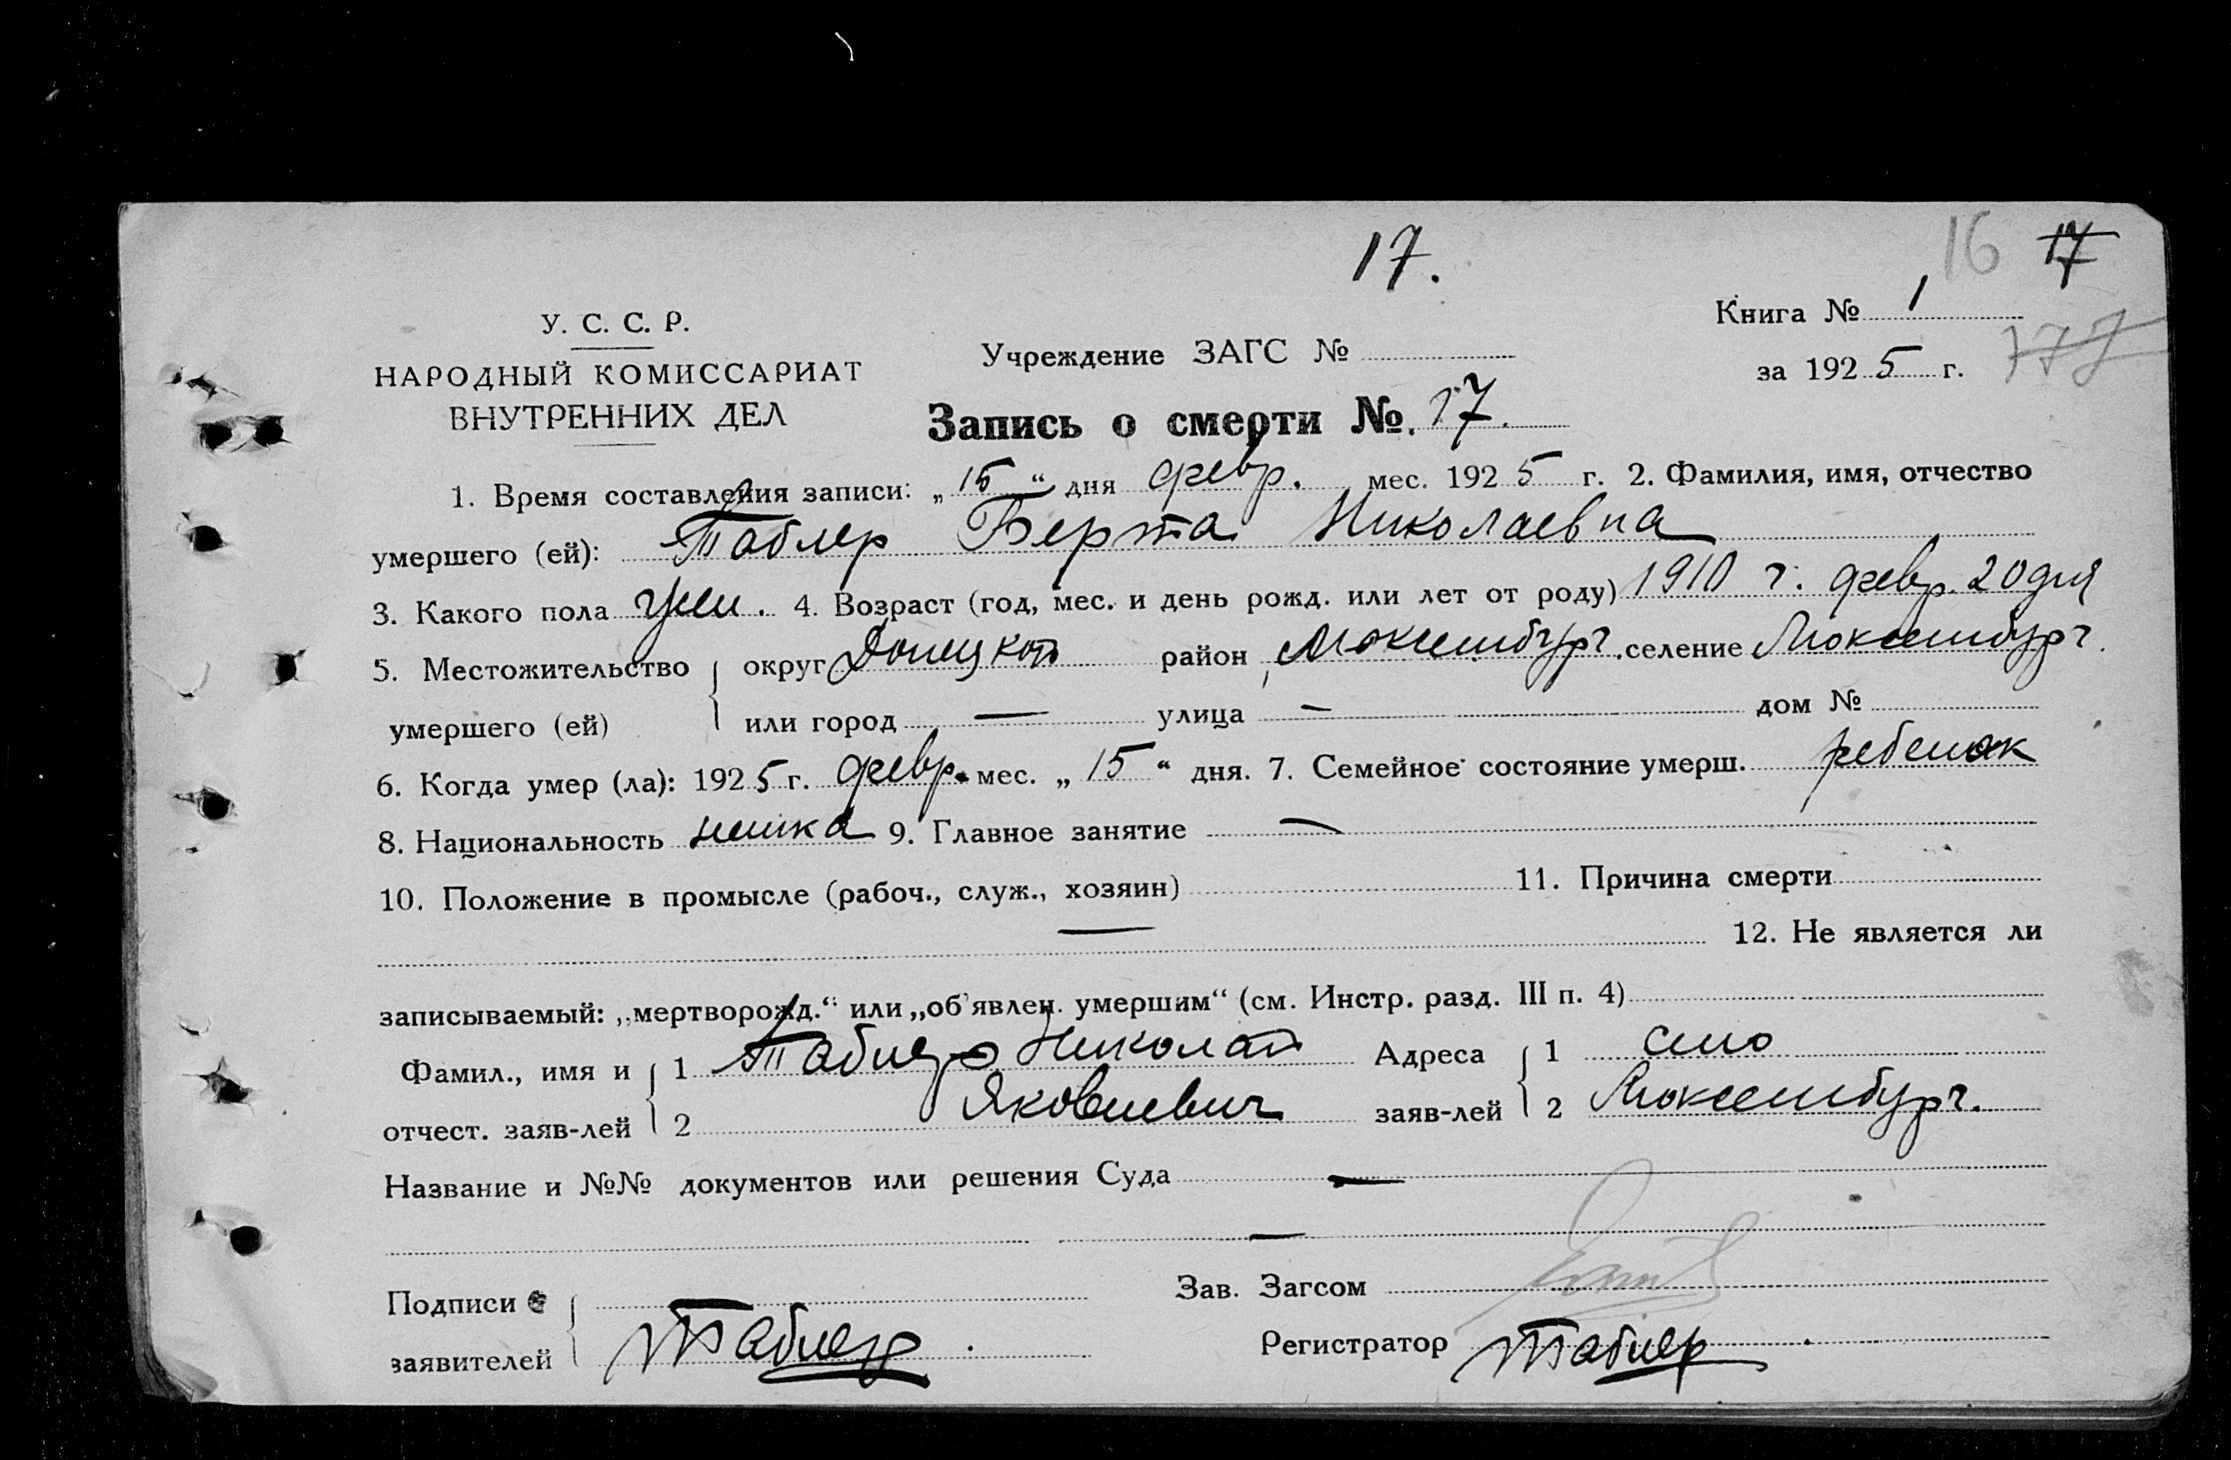 17.
16 17
У. С. С. Р.
НАРОДНЫЙ КОМИССАРИАТ
ВНУТРЕННИХ ДЕЛ
Учреждение ЗАГС №
Книга № 1
за 1925 г. 177
Запись о смерти №. 17.
1. Время составления записи: „15“ дня февр. мес. 1925 г. 2. Фамилия, имя, отчество
умершего (ей): Таблер Берта Николаевна
3. Какого пола жен. 4. Возраст (год, мес. и день рожд. или лет от роду) 1910 г. февр. 20 дня
5. Местожительство округ Донецкой район Люксембург. селение Люксембург.
умершего (ей) или город — улица — дом №
6. Когда умер (ла): 1925 г. февр. мес. „15“ дня. 7. Семейное состояние умерш. ребенок
8. Национальность немка 9. Главное занятие —
10. Положение в промысле (рабоч., служ., хозяин) 11. Причина смерти
— 12. Не является ли
записываемый: „мертворожд.“ или „об'явлен. умершим“ (см. Инстр. разд. III п. 4)
Фамил., имя и 1 Таблер Николай Адреса 1 село
отчест. заяв-лей 2 Яковлевич заяв-лей 2 Люксембург.
Название и №№ документов или решения Суда —
—
Подписи Зав. Загсом
заявителей Таблер. Регистратор Таблер